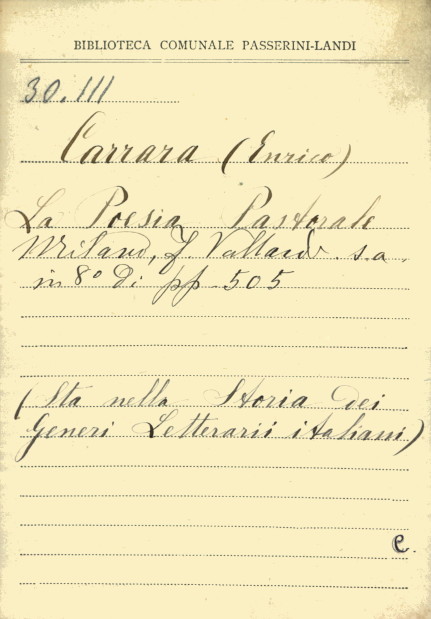 BIBLIOTECA COMUNALE PASSERINI-LANDI
30.III
Carrara (Enrico)
La Poesia Pastorale
Milano, F. Vallardi s.a.
in 8º di pp. 505
(Sta nella Storia dei
Generi Letterarii italiani)
e.